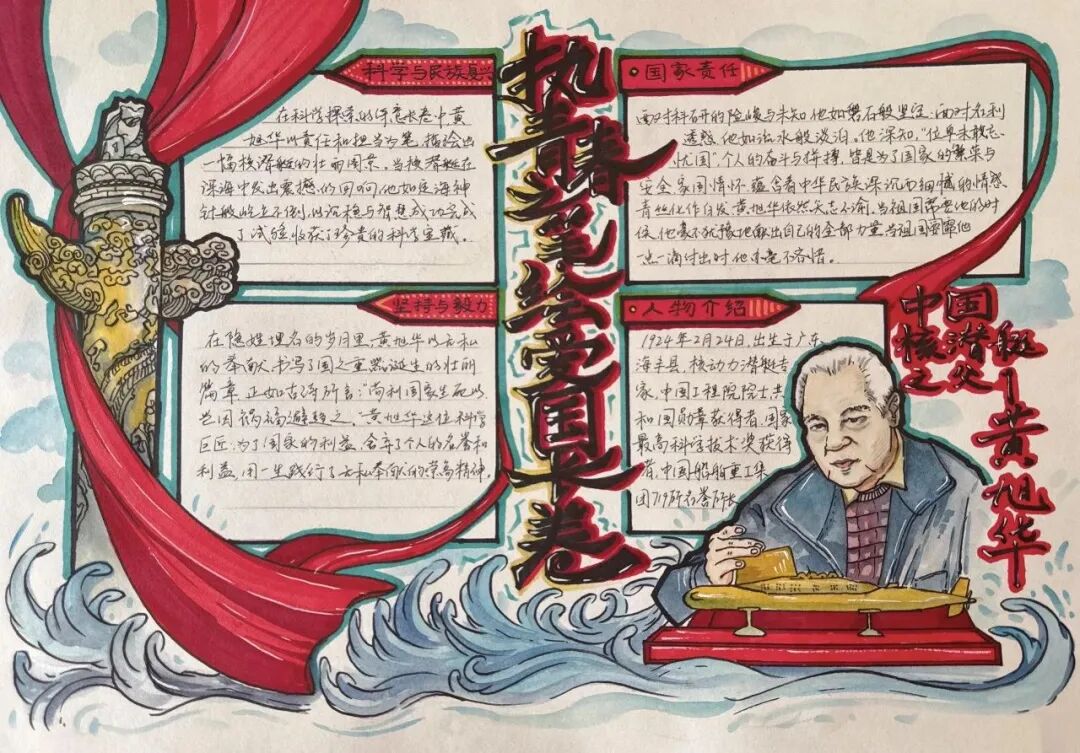 执青春之笔绘爱国长卷
科学与民族复兴
在科学探索的浩瀚长卷中黄
旭华以责任和担当为笔,描绘出
一幅核潜艇的壮丽图景。当核潜艇在
深海中发出震撼的回响,他如定海神
针般屹立不倒,以沉稳与智慧成功完成
了试验,收获了珍贵的科学宝藏。
国家责任
面对科研的险峻与未知,他如磐石般坚定,面对名利
诱惑,他如淡水般淡泊。他深知,“位卑未敢忘
忧国”,个人的奋斗与拼搏,皆是为了国家的繁荣与
安全,家国情怀,蕴含着中华民族深沉而细腻的情感。
青丝化作白发,黄旭华依然矢志不渝,当祖国需要他的时
候,他毫不犹豫地献出自己的全部力量,当祖国需要他
一点一滴付出时,他亦毫不吝惜。
坚持与毅力
在隐姓埋名的岁月里,黄旭华以无私
的奉献书写了国之重器诞生的壮丽
篇章,正如古语所言:“苟利国家生死以,
岂因祸福避趋之”,黄旭华这位科学
巨匠,为了国家的利益,舍弃了个人的名誉和
利益,用一生践行了无私奉献的崇高精神。
人物介绍
1924年2月24日,出生于广东
海丰县,核动力潜艇专
家,中国工程院院士,共
和国勋章获得者,国家
最高科学技术奖获得
者,中国船舶重工集
团719所名誉所长
中国
核潜艇
之父
—黄旭华